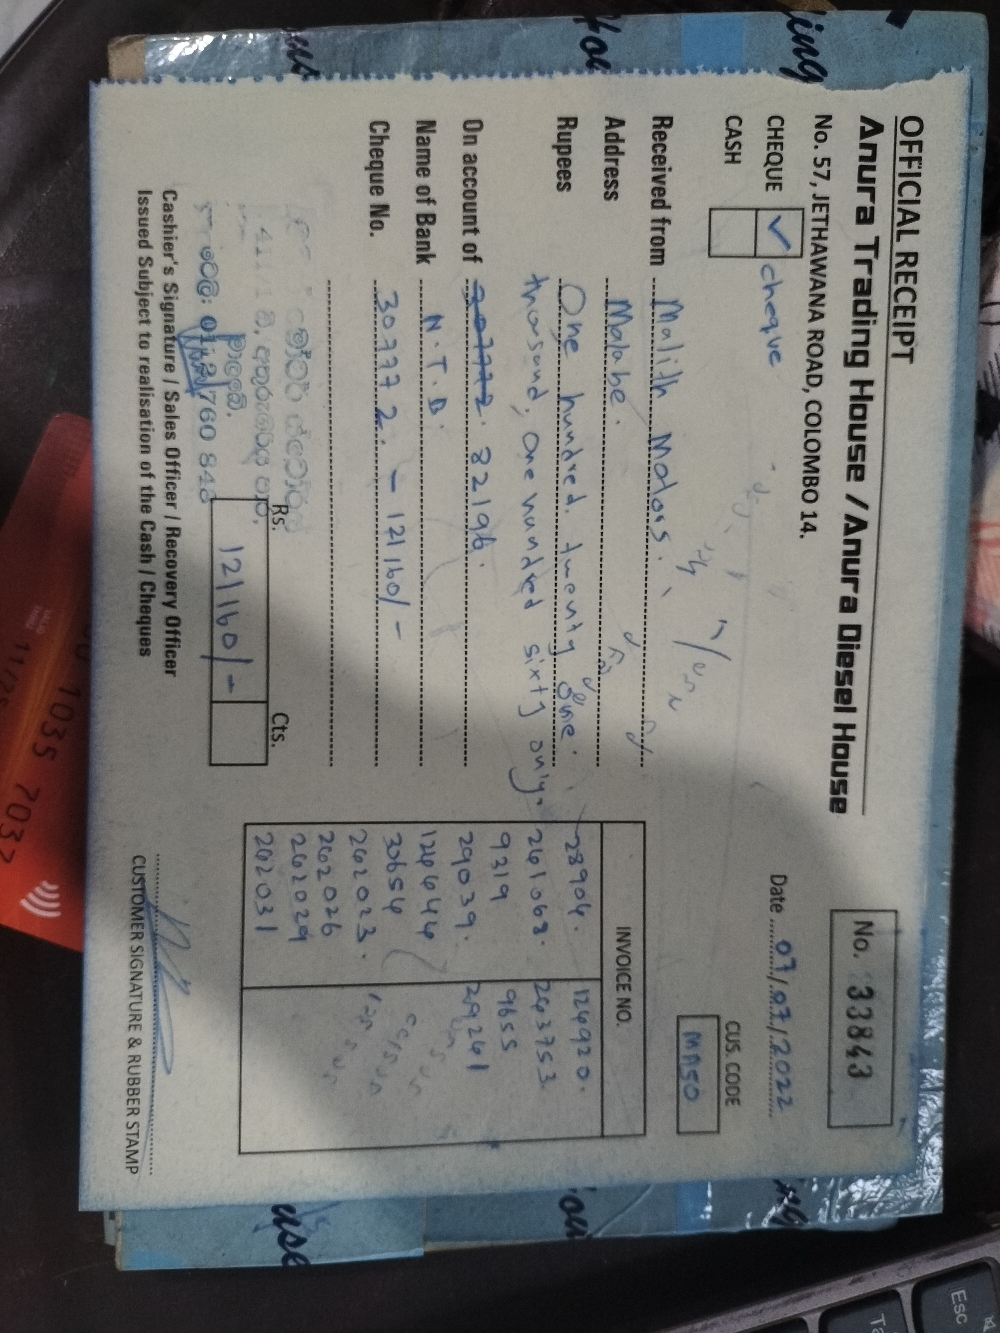 OFFICIAL RECEIPT
Anura Trading House / Anura Diesel House
No. 57, JETHAWANA ROAD, COLOMBO 14.
No. 33843
CHEQUE ✓ cheque
CASH
Date 07/07/2022
CUS. CODE
MA50
Received from Malith Motors.
Address Malabe.
Rupees One hundred twenty one
thousand, one hundred sixty only.
On account of 307772. 32196.
Name of Bank N.T.B.
Cheque No. 307772. - 121160/-
Rs. Cts.
121160/-
INVOICE NO.
28904. 124920.
261068. 263753.
9319 9655
29039. 29261
126444
30654
262023.
262026
262029
262031
Cashier's Signature / Sales Officer / Recovery Officer
Issued Subject to realisation of the Cash / Cheques
CUSTOMER SIGNATURE & RUBBER STAMP
1035 7037
11/25
Esc